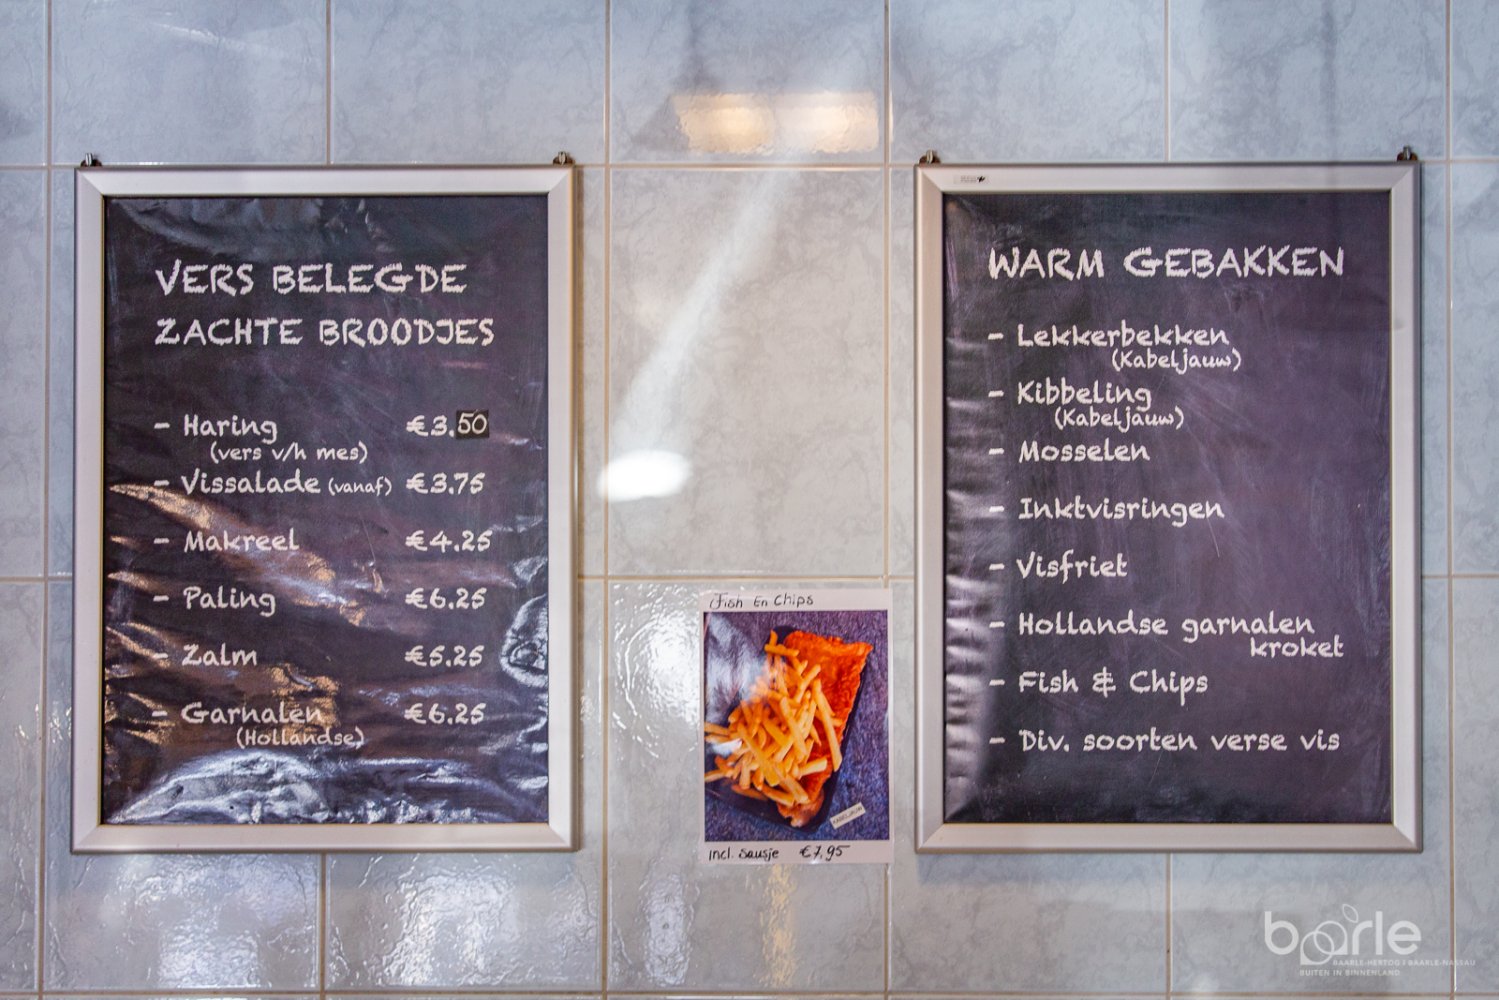 VERS BELEGDE
ZACHTE BROODJES
- Haring €3.50
(vers v/h mes)
- Vissalade (vanaf) €3.75
- Makreel €4.25
- Paling €6.25
- Zalm €5.25
- Garnalen €6.25
(Hollandse)
Fish En Chips
KABELJAUW
incl. Sausje €7,95
WARM GEBAKKEN
- Lekkerbekken
(Kabeljauw)
- Kibbeling
(Kabeljauw)
- Mosselen
- Inktvisringen
- Visfriet
- Hollandse garnalen
kroket
- Fish & Chips
- Div. soorten verse vis
baarle
BAARLE-HERTOG / BAARLE-NASSAU
BUITEN IN BINNENLAND